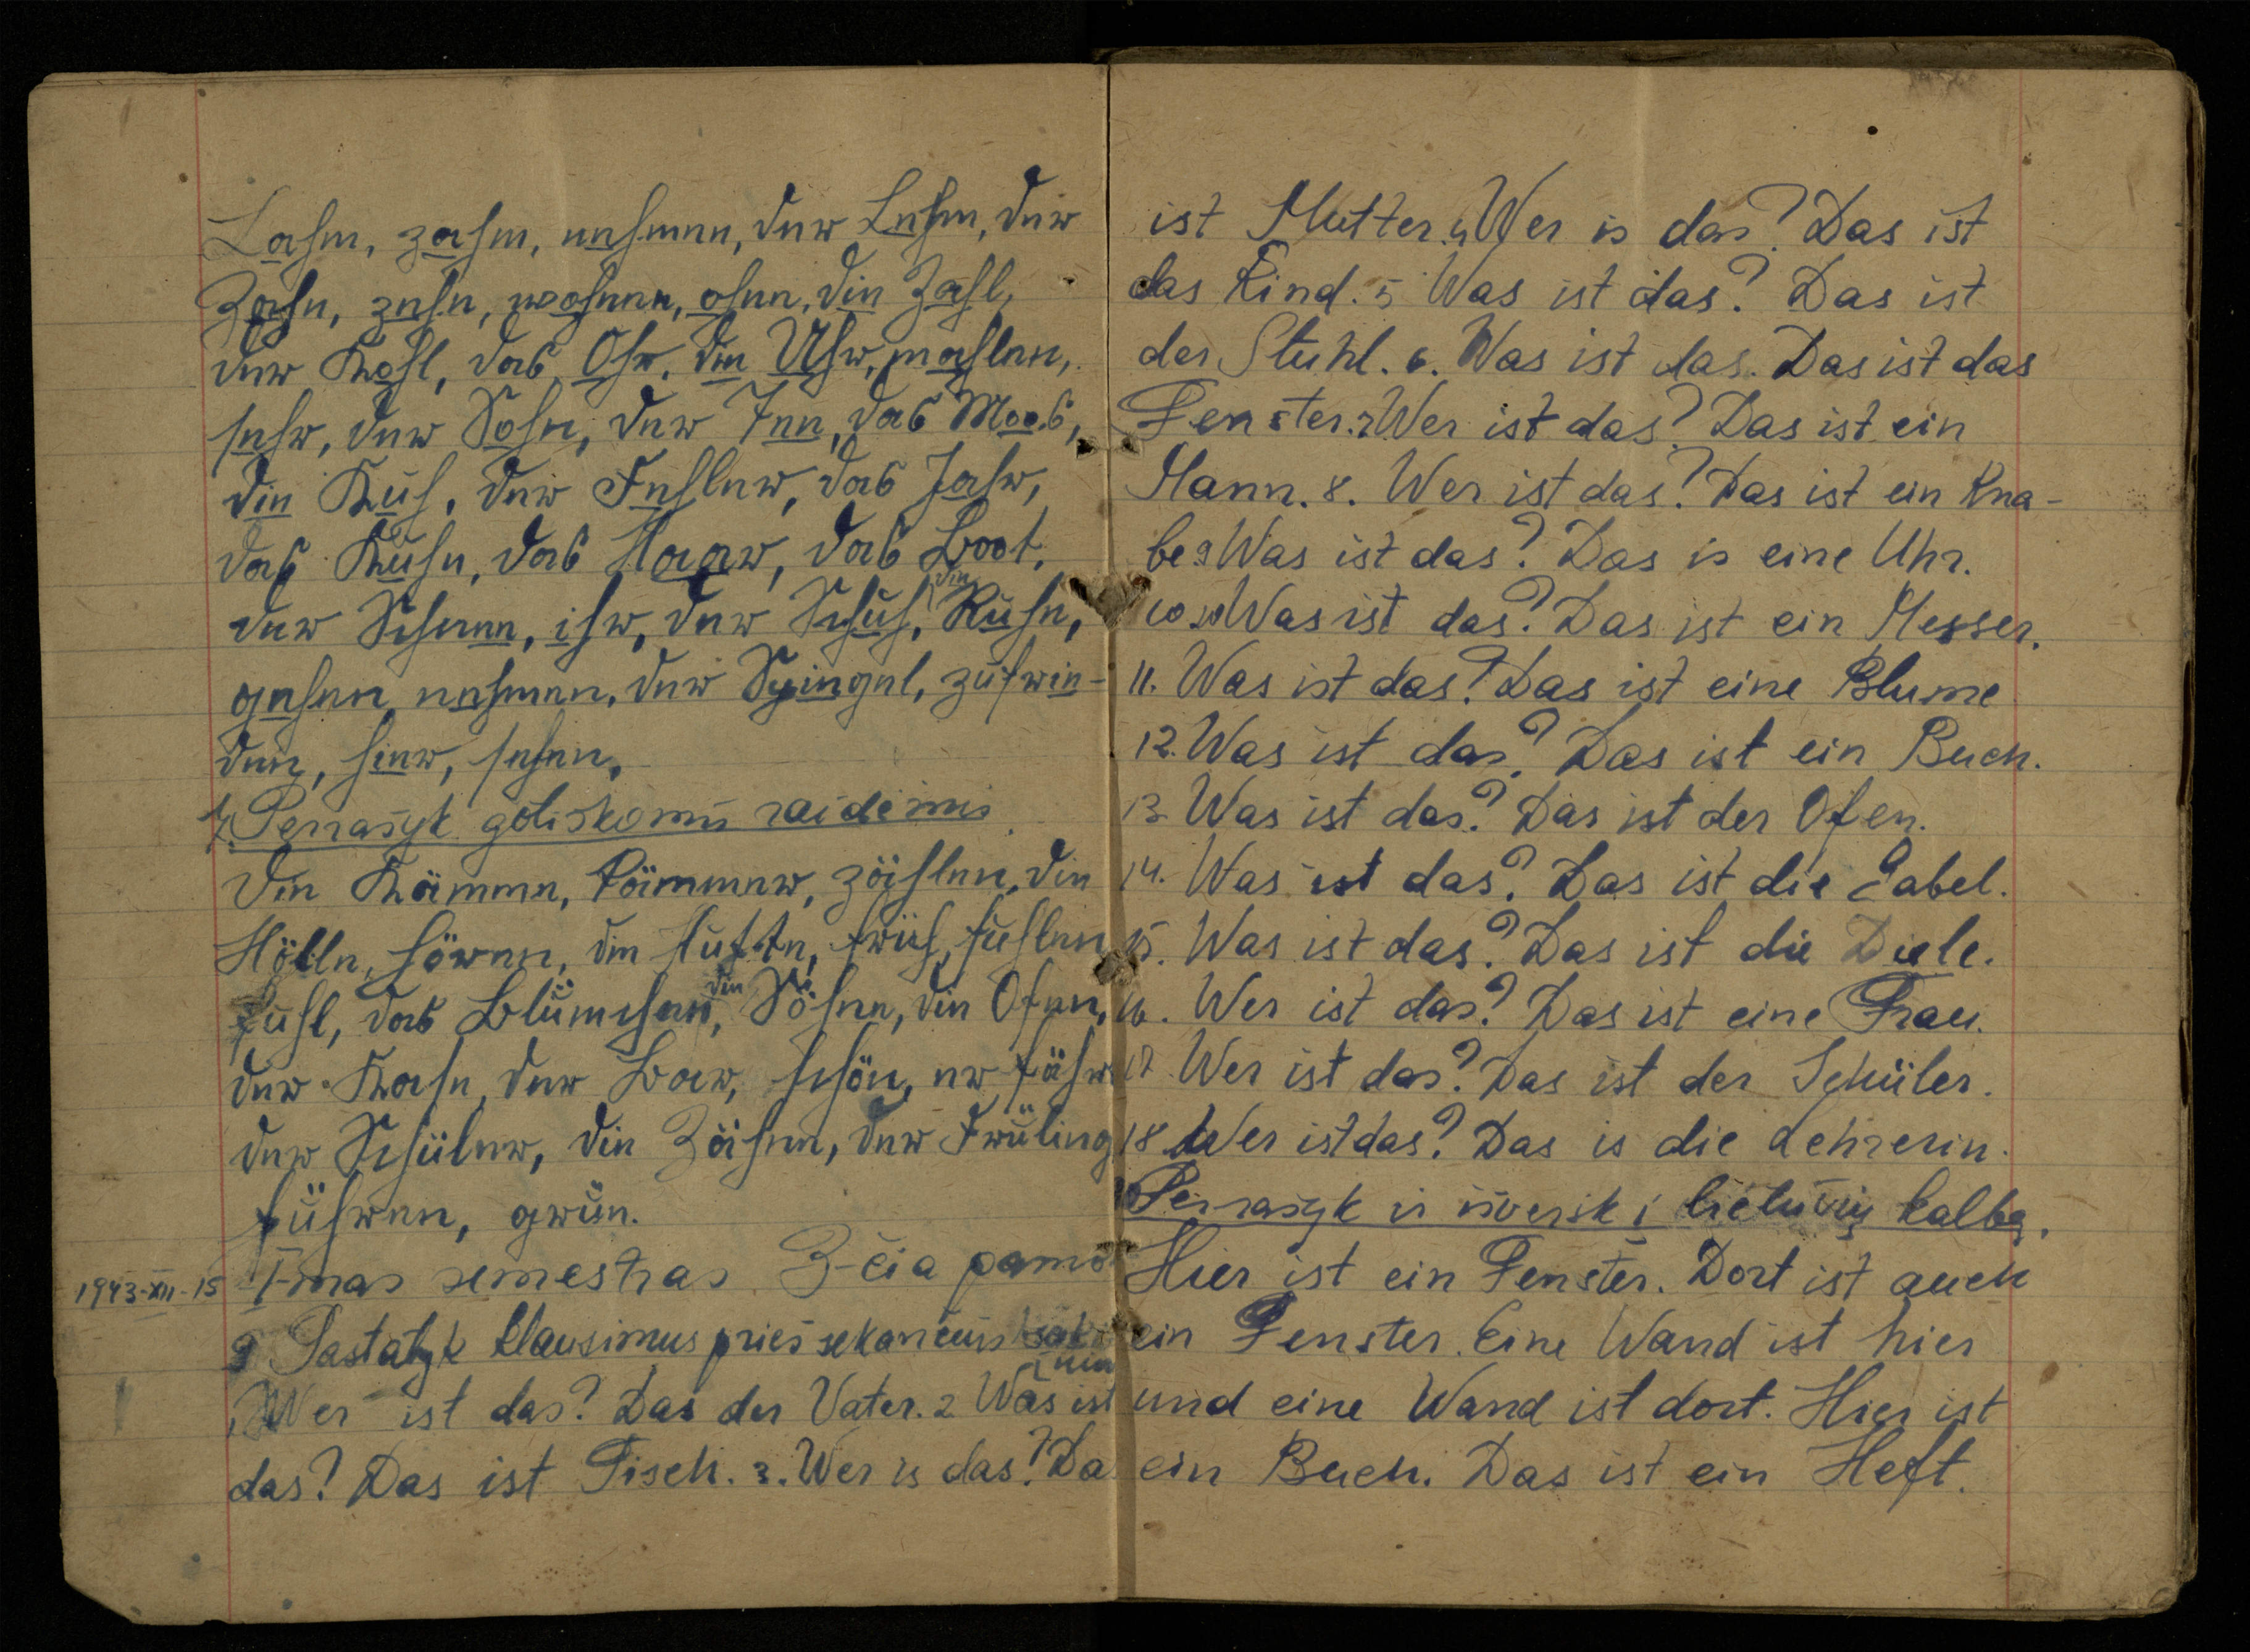 Lahm, zahm, nehmen, der Lehm, der
Zahn, zehn, wohnen, ohne, die Zahl,
der Kohl, das Ohr, die Uhr, mahlen,
sehr, der Sohn, der See, das Moos,
die Kuh, der Fehler, das Jahr,
das Kuhn, das Haar, das Boot,
der Schnee, ihr, der Schuh, die Ruhe,
gehen, nehmen, der Spiegel, zufrie-
den, hier, sehen,
7. Perrašyk gotiškomis raidėmis
die Kämme, Kämmer, zählen, die
Hölle, hören, die Hutte, früh, fuhlen
kuhl, das Blümchen, die Söhne, die Ofen,
der Kahn, der Bar, schön, er fähr
der Schüler, die Zähne, der Früling
führen, grün.
1943-XII-15 I-mas semestras 3-čia pamo
9 Pastatyk klausimus prieš sekančius saki
nius
1 Wer ist das? Das der Vater. 2 Was ist
das? Das ist Tisch. 3. Wer is das? Da
ist Mutter. 4 Wer is das? Das ist
das Kind. 5 Was ist das? Das ist
der Stuhl. 6. Was ist das. Das ist das
Fenster. 7 Wer ist das? Das ist ein
Mann. 8. Wer ist das? Das ist ein Kna-
be 9 Was ist das? Das is eine Uhr.
10. Was ist das? Das ist ein Messer.
11. Was ist das? Das ist eine Blume
12. Was ist das? Das ist ein Buch.
13 Was ist das? Das ist der Ofen.
14. Was ist das? Das ist die Gabel.
15. Was ist das? Das ist die Diele.
16. Wer ist das? Das ist eine Frau.
17. Wer ist das? Das ist der Schüler.
18 Wer ist das? Das is die Lehrerin.
10 Perrašyk ir išversk į lietuvių kalbą.
Hier ist ein Fenster. Dort ist auch
ein Fenster. Eine Wand ist hier
und eine Wand ist dort. Hier ist
ein Buch. Das ist ein Heft.